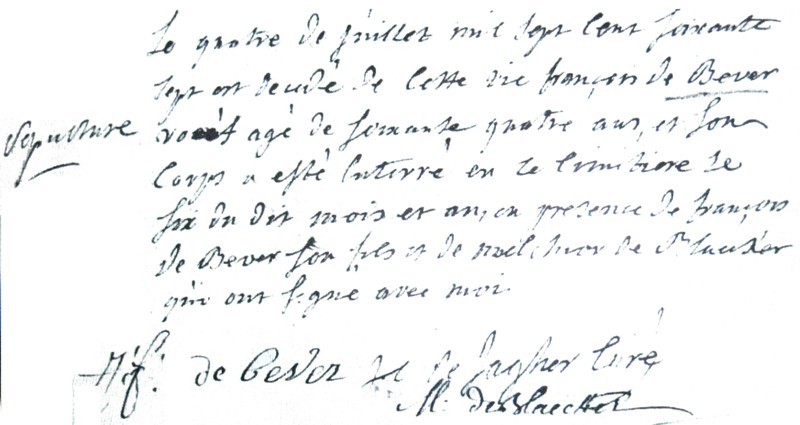 Le quatre de juillet mil sept cent soixante
sept est decedé de cette vie françois de Bever
agé de soixante quatre ans, et son
Sepulture
Corps a esté enterré en ce cimitiere le
six du dit mois et an, en presence de françois
de Bever son fils et de melchior de Blaecker
qui ont signé avec moi
de bever de Curé
M. de Blaecker